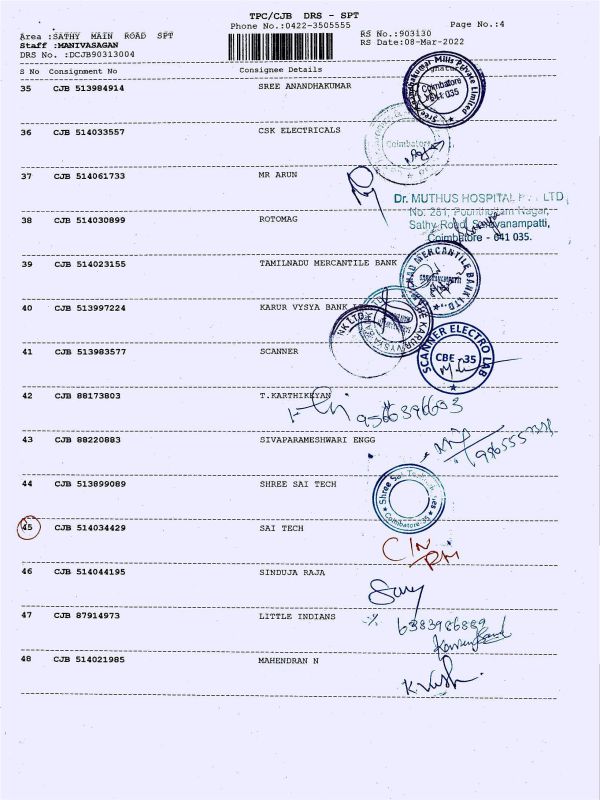 TPC/CJB DRS - SPT
Phone No.:0422-3505555
Page No.:4
Area :SATHY MAIN ROAD SPT
Staff :MANIVASAGAN
DRS No. :DCJB90313004
RS No.:903130
RS Date:08-Mar-2022
S No Consignment No Consignee Details
35 CJB 513984914 SREE ANANDHAKUMAR
Coimbatore
641 035
36 CJB 514033557 CSK ELECTRICALS
Coimbatore
37 CJB 514061733 MR ARUN
Dr. MUTHUS HOSPITAL LTD
Nagar,
38 CJB 514030899 ROTOMAG
Sathy Road, Saravanampatti,
Coimbatore - 641 035.
39 CJB 514023155 TAMILNADU MERCANTILE BANK
MERCANTILE BANK LTD
40 CJB 513997224 KARUR VYSYA BANK
41 CJB 513983577 SCANNER
SCANNER ELECTRO LAB
CBE -35
42 CJB 88173803 T.KARTHIKEYAN
43 CJB 88220883 SIVAPARAMESHWARI ENGG
44 CJB 513899089 SHREE SAI TECH
Shree Sai
Coimbatore-35
45 CJB 514034429 SAI TECH
46 CJB 514044195 SINDUJA RAJA
47 CJB 87914973 LITTLE INDIANS
6383986889
48 CJB 514021985 MAHENDRAN N